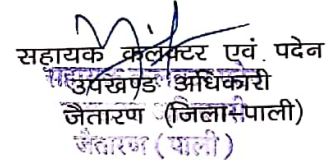 सहायक कलेक्टर एवं. पदेन
उपखण्ड अधिकारी
जैतारण (जिला-पाली)
जैतारण (पाली)